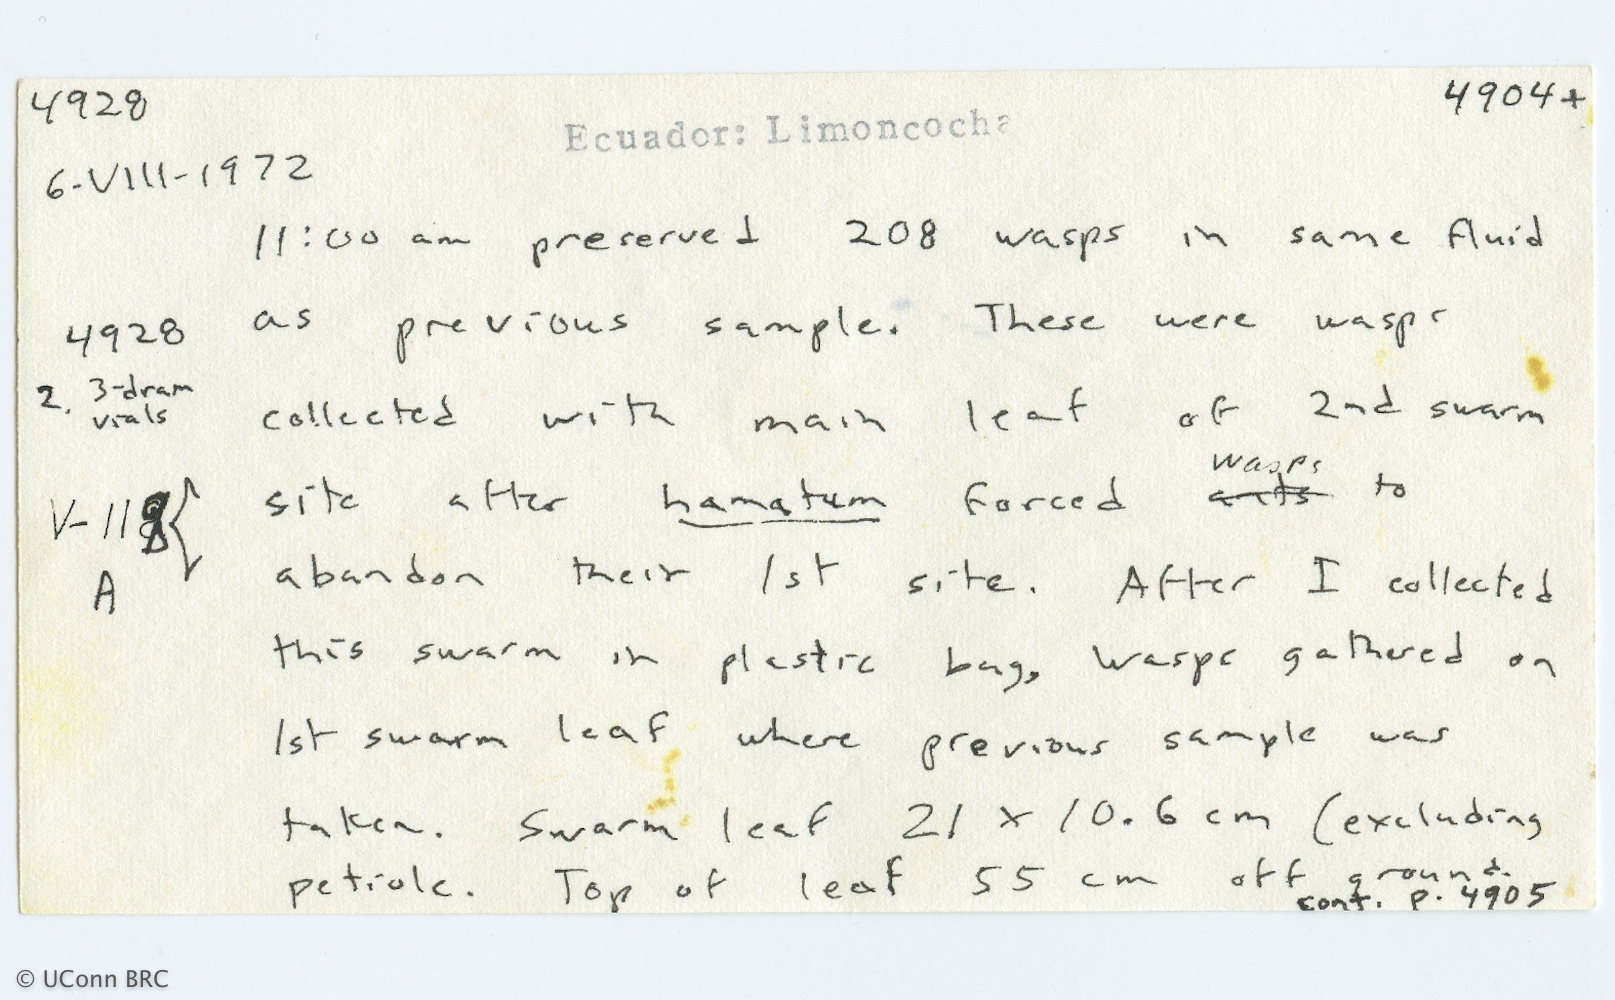 4928
4904+
Ecuador: Limoncocha
6-VIII-1972
11:00 am preserved 208 wasps in same fluid
4928 as previous sample. These were wasps
2. 3-dram vials
collected with main leaf of 2nd swarm
wasps
V-118 { site after hamatum forced ants to
A abandon their 1st site. After I collected
this swarm in plastic bag, wasps gathered on
1st swarm leaf where previous sample was
taken. Swarm leaf 21 x 10.6 cm (excluding
petiole. Top of leaf 55 cm off ground.
cont. p. 4905
© UConn BRC